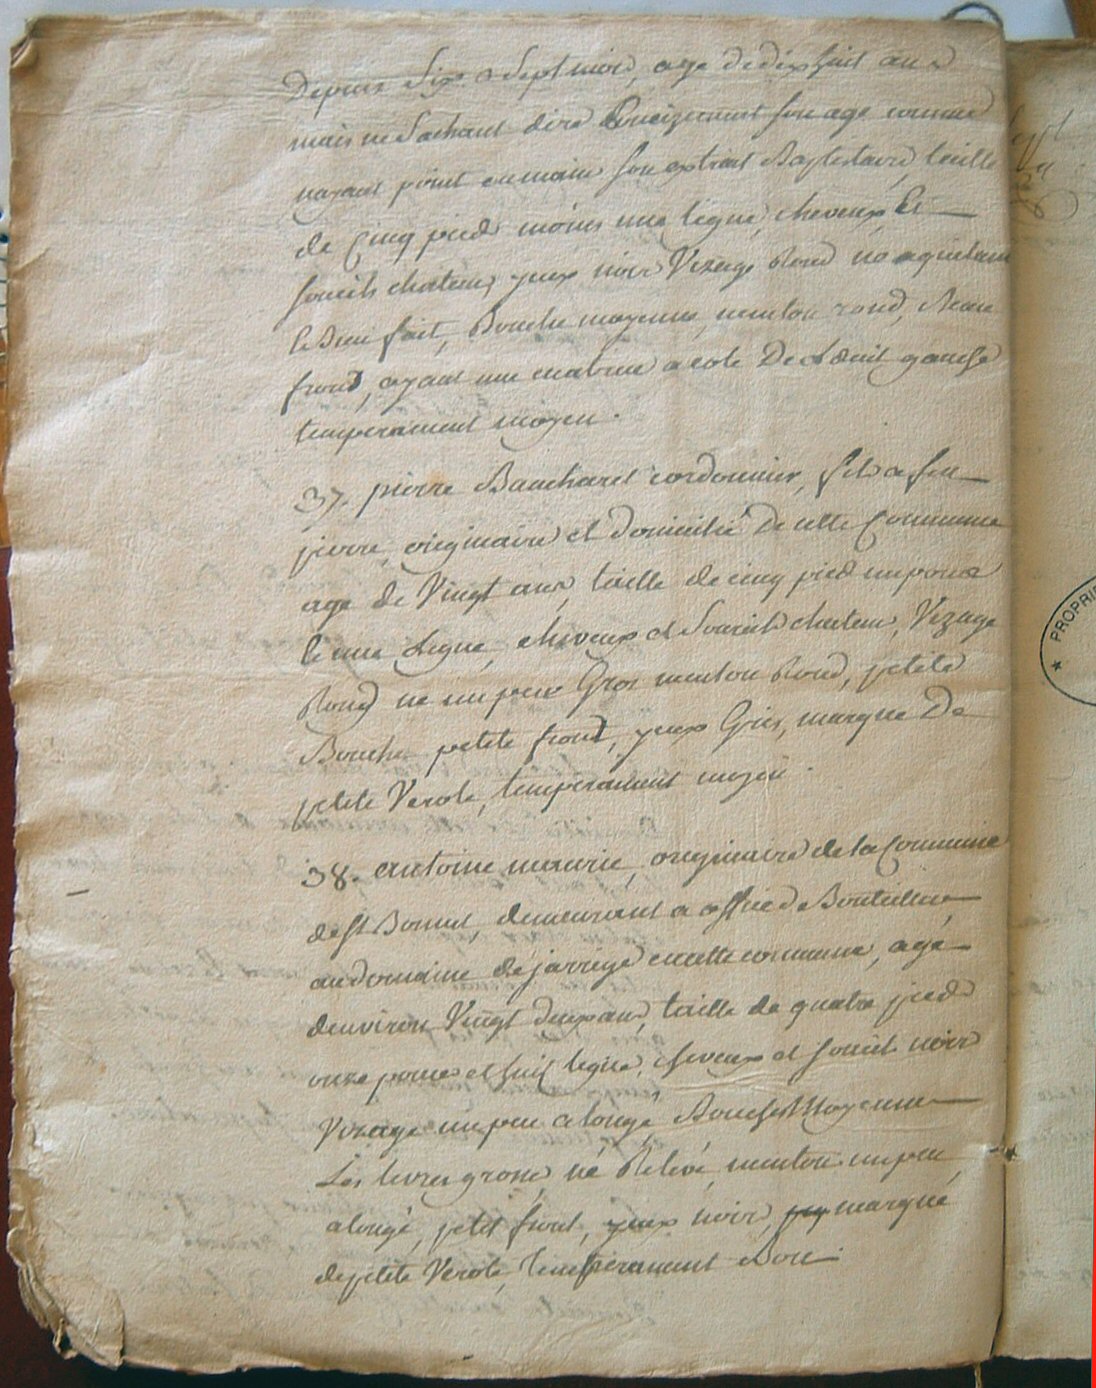 Depuis Six a Sept mois, age de dix huit ans
mais ne Sachant dire Precizement son age comme
nayant point en main son extrait Baptistaire, taille
de Cinq pieds moins une ligne, cheveux Et
sourcils chatens, yeux noirs Vizage Rond né aquilain
le Bien fait, Bouche moyenne, menton rond, Beau
front, ayant une a coté De Loeuil gauche
temperament moyen.
37. pierre Baucharel cordonnier, fils a feu
pierre, originaire et Domicilié De cette Commune
age de Vingt ans, taille de cinq pied un pouce
le une Ligne, cheveux et Sourcils chatens, Vizage
Rond né un peu Gros menton Rond, petite
Bouche petite front, yeux Gris, marqué De
petite Verole, temperament moyen.
38. antoine maurie, originaire de la Commune
de St Bonnet, demeurant a Bouteillou,
au domaine de jarrige en cette commune, agé
denviron Vingt deux ans, taille de quatre pieds
onze pouces et huit lignes, cheveux et sourcils noirs
Vizage un peu alongé Bouche Moyenne
Les levres grosse né Relevé, menton un peu
alongé, petit front, yeux noirs, marqué
de petite Verole, temperament Bon.
PROPRI